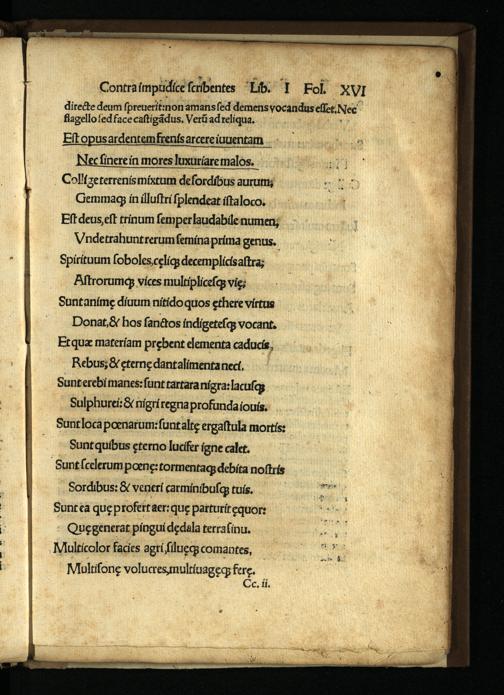 Contra impudice scribentes Lib. I Fol. XVI
directe deum spreuerit: non amans sed demens vocandus esset. Nec
flagello sed face castigādus. Verū ad reliqua.
Est opus ardentem frenis arcere iuuentam
Nec sinere in mores luxuriare malos.
Collige terrenis mixtum de sordibus aurum,
Gemmaqꝫ in illustri splendeat ista loco.
Est deus, est trinum semper laudabile numen,
Vnde trahunt rerum semina prima genus.
Spirituum soboles, cęliqꝫ decemplicis astra;
Astrorumqꝫ vices multiplicesqꝫ vię;
Sunt animę diuum nitido quos ęthere virtus
Donat, & hos sanctos indigetesqꝫ vocant.
Et quæ materiam prębent elementa caducis
Rebus, & ęternę dant alimenta neci.
Sunt erebi manes: sunt tartara nigra: lacusqꝫ
Sulphurei: & nigri regna profunda iouis.
Sunt loca pœnarum: sunt altę ergastula mortis:
Sunt quibus ęterno lucifer igne calet.
Sunt scelerum pœnę: tormentaqꝫ debita nostris
Sordibus: & veneri carminibusqꝫ tuis.
Sunt ea quę profert aer: quę parturit ęquor:
Quę generat pingui dędala terra sinu.
Multicolor facies agri, siluęqꝫ comantes,
Multisonę volucres, multiuagęqꝫ ferę.
Cc. ii.